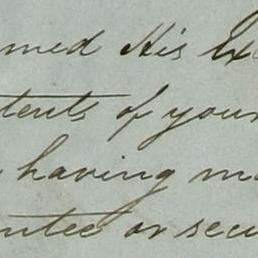 med His Ex
tents of your
having ma
ntee or secu